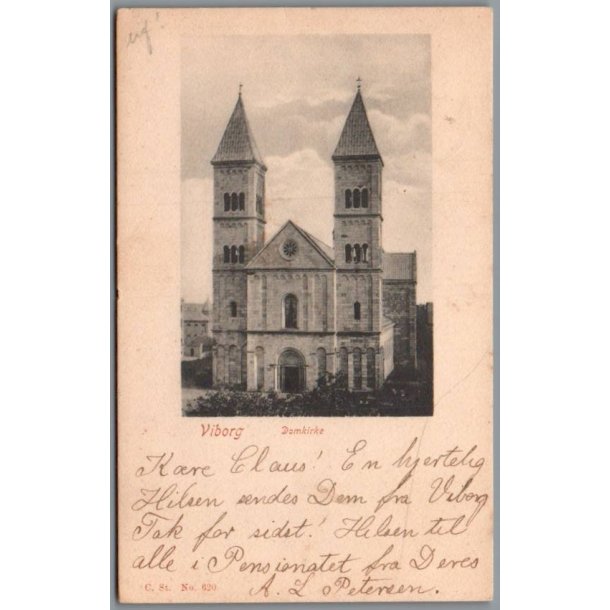 uf!
Viborg Domkirke
Kære Claus! En hjertelig
Hilsen sendes Dem fra Viborg
Tak for sidst! Hilsen til
alle i Pensionatet fra Deres
A. L. Petersen.
C. St. No. 620